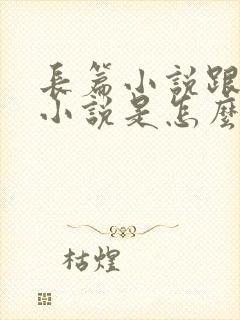 長篇小說跟
小說是怎麼
枯煌